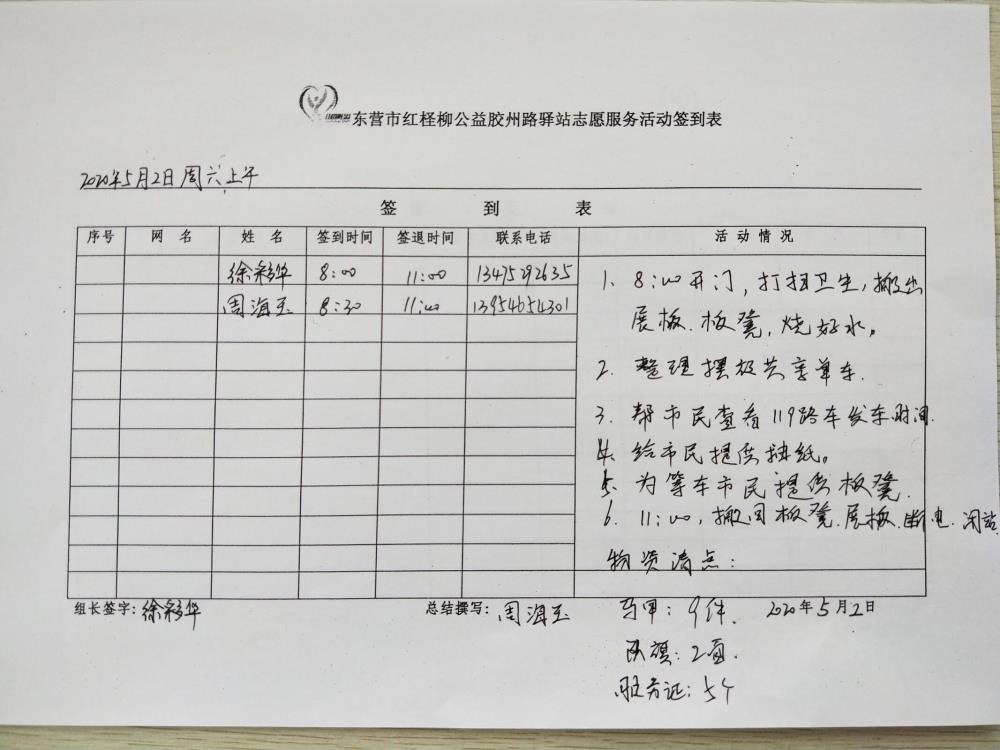 东营市红柽柳公益胶州路驿站志愿服务活动签到表
2020年5月2日周六上午
签 到 表
序号 网 名 姓 名 签到时间 签退时间 联系电话 活 动 情 况
徐彩华 8:00 11:00 13475292635
周海玉 8:30 11:00 13954654301
1. 8:00开门,打扫卫生,搬出
展板、板凳,烧好水。
2. 整理摆放共享单车.
3. 帮市民查看119路车发车时间.
4. 给市民提供抽纸。
5. 为等车市民提供板凳.
6. 11:00,搬回板凳、展板、断电、闭站
物资清点:
组长签字:徐彩华 总结撰写:周海玉 马甲:9件. 2020年5月2日
队旗:2面.
服务证:5个